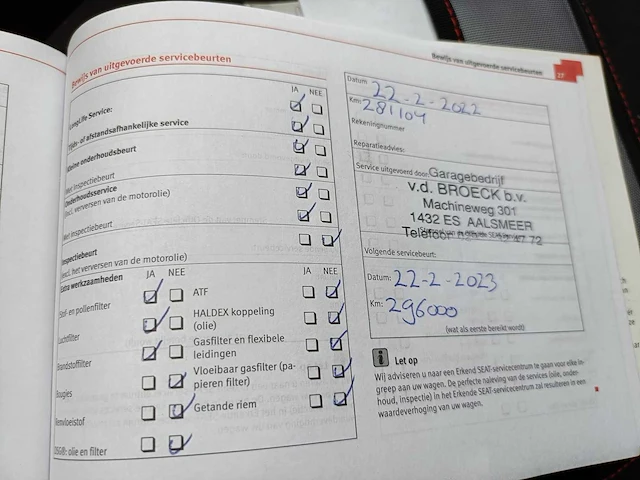 Bewijs van uitgevoerde servicebeurten
JA NEE
LongLife Service:
Tijds- of afstandsafhankelijke service
Kleine onderhoudsbeurt
Met inspectiebeurt
Onderhoudsservice
(incl. verversen van de motorolie)
Met inspectiebeurt
Inspectiebeurt
(excl. het verversen van de motorolie)
Extra werkzaamheden
JA NEE
Stof- en pollenfilter
Luchtfilter
Brandstoffilter
Bougies
Remvloeistof
DSG®: olie en filter
JA NEE
ATF
HALDEX koppeling
(olie)
Gasfilter en flexibele
leidingen
Vloeibaar gasfilter (pa-
pieren filter)
Getande riem
Bewijs van uitgevoerde servicebeurten
27
Datum: 22-2-2022
Km: 281104
Rekeningnummer
Reparatieadvies:
Service uitgevoerd door:
Garagebedrijf
v.d. BROECK b.v.
Machineweg 301
1432 ES AALSMEER
Volgende servicebeurt:
Datum: 22-2-2023
Km: 296000
(wat als eerste bereikt wordt)
Let op
Wij adviseren u naar een Erkend SEAT-servicecentrum te gaan voor elke in-
greep aan uw wagen. De perfecte naleving van de services (olie, onder-
houd, inspectie) in het Erkende SEAT-servicecentrum zal resulteren in een
waardeverhoging van uw wagen.